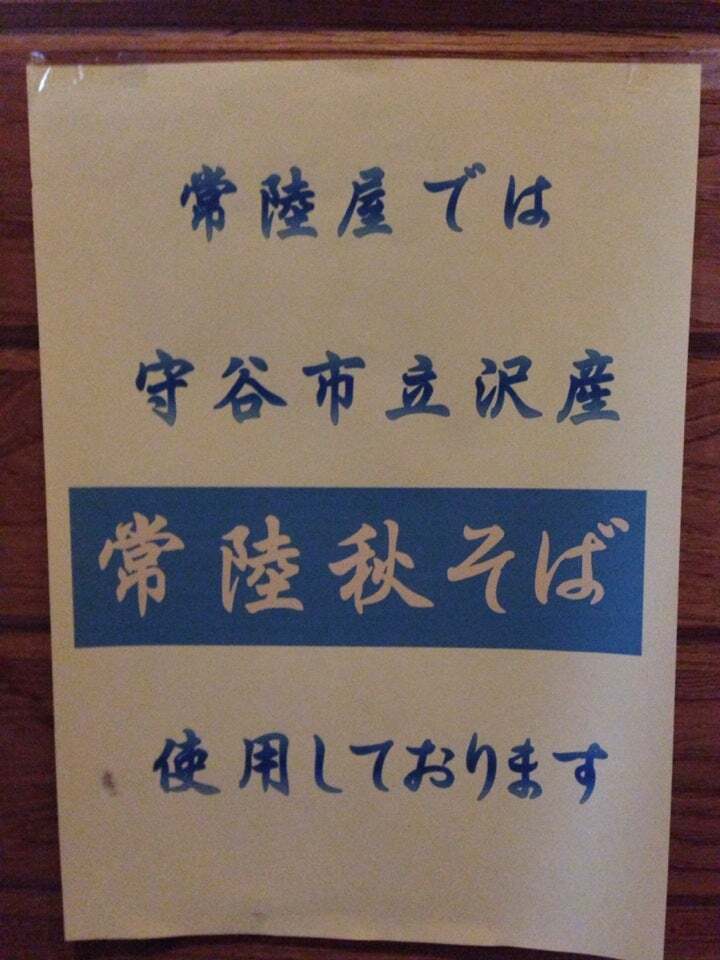 常陸屋では
守谷市立沢産
常陸秋そば
使用しております